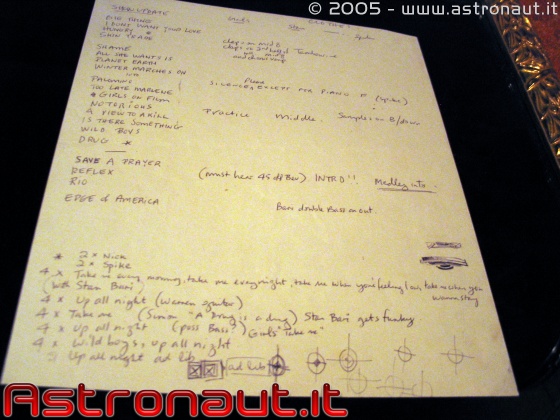 © 2005 - www.astronaut.it
Girls
I DONT WANT YOUR LOVE
HUNGRY
SKIN TRADE
SHAME
ALL SHE WANTS IS
PLANET EARTH
WINTER MARCHES ON
PALOMINO
TOO LATE MARLENE
* GIRLS ON FILM
NOTORIOUS
A VIEW TO A KILL
IS THERE SOMETHING
WILD BOYS
DRUG *
Tambourine
SILENCE, EXCEPT FOR PIANO (Spike)
Practice Middle. Samples on B/down
SAVE A PRAYER
REFLEX (must hear 4's off Bev) INTRO!! Medley into
RIO
EDGE of AMERICA Bari double Bass on out.
* 2 x Nick
2 x Spike
4 x Take me every morning, take me every night, take me when you feeling low, take me when you wanna stay
(with Stan Bari)
4 x Up all night (Women)
4 x Take me (Simon "A Drug is a drug) Stan Bari gets funky
4 x Up all night (poss Bass?) Girls "Take me"
4 x Wild boys, up all night
Up all night ad lib
ad lib
Astronaut.it